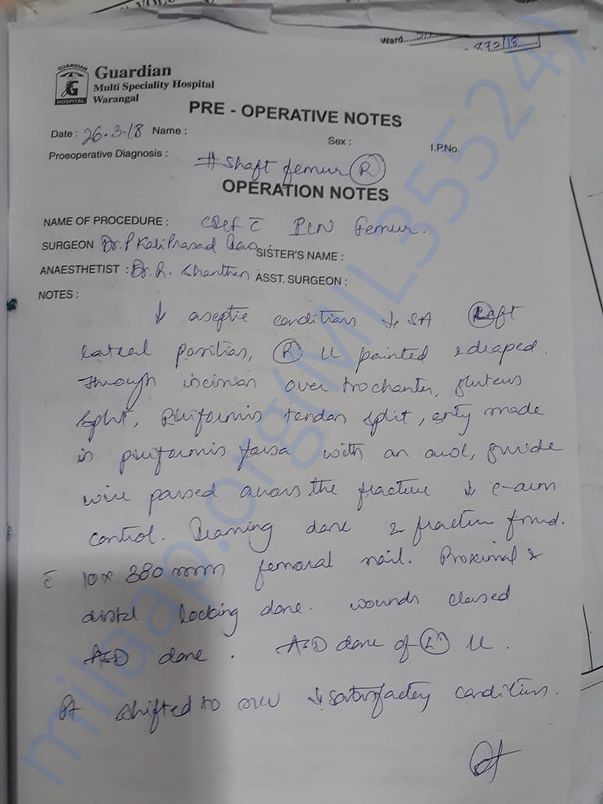 Ward
472/18
GUARDIAN
HOSPITAL
Guardian
Multi Speciality Hospital
Warangal
PRE - OPERATIVE NOTES
Date : 26.3.18 Name :
Sex :
I.P.No.
Proeoperative Diagnosis : # Shaft femur (R)
OPERATION NOTES
NAME OF PROCEDURE : CRIF c̄ PLN Femur.
SURGEON Dr. P Kali Prasad Rao SISTER'S NAME :
ANAESTHETIST : Dr. R. Shanthan ASST. SURGEON :
NOTES :
↓ aseptic conditions ↓ SA Left
lateral position, (R) LL painted & draped.
Through incision over trochanter, gluteus
split, piriformis tendon split, entry made
in piriformis fossa with an awl, guide
wire passed across the fracture ↓ c-arm
control. Reaming done & fracture fixed.
c̄ 10 x 380 mm femoral nail. Proximal &
distal locking done. wounds closed
ASD done. ASD done of (L) LL.
Pt shifted to ↓ satisfactory conditions.
milaap.org(MIL355524)